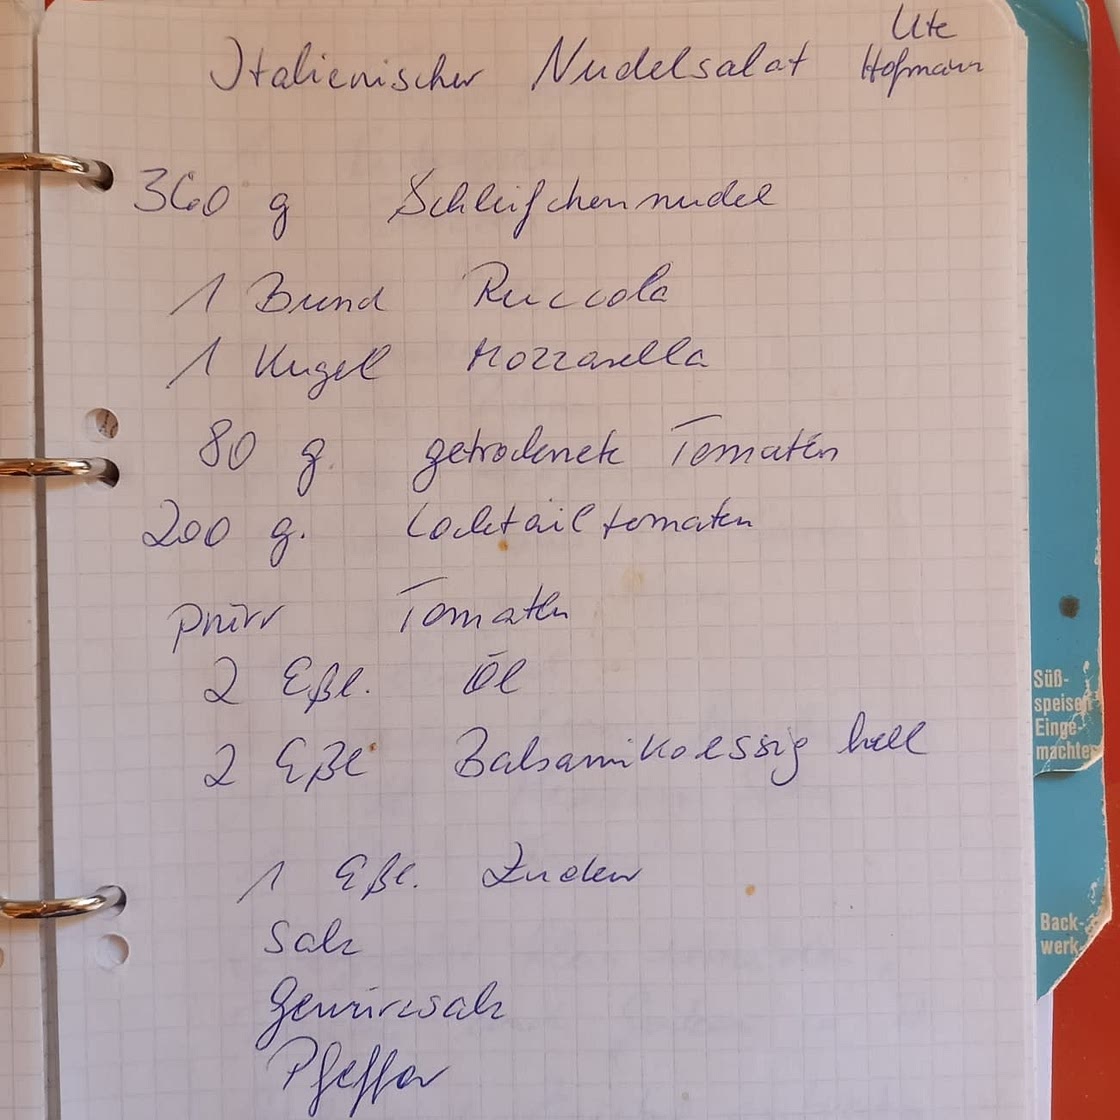 Italienischer Nudelsalat Ute Hofmann
360 g Schleifchennudel
1 Bund Ruccola
1 Kugel Mozzarella
80 g. getrocknete Tomaten
200 g. Cocktailtomaten
pürir Tomaten
2 Eßl. Öl
2 Eßl Balsamikoessig hell
1 Eßl. Zucker
Salz
Gewürzsalz
Pfeffer
Süß-
speisen
Einge-
machtes
Back-
werk